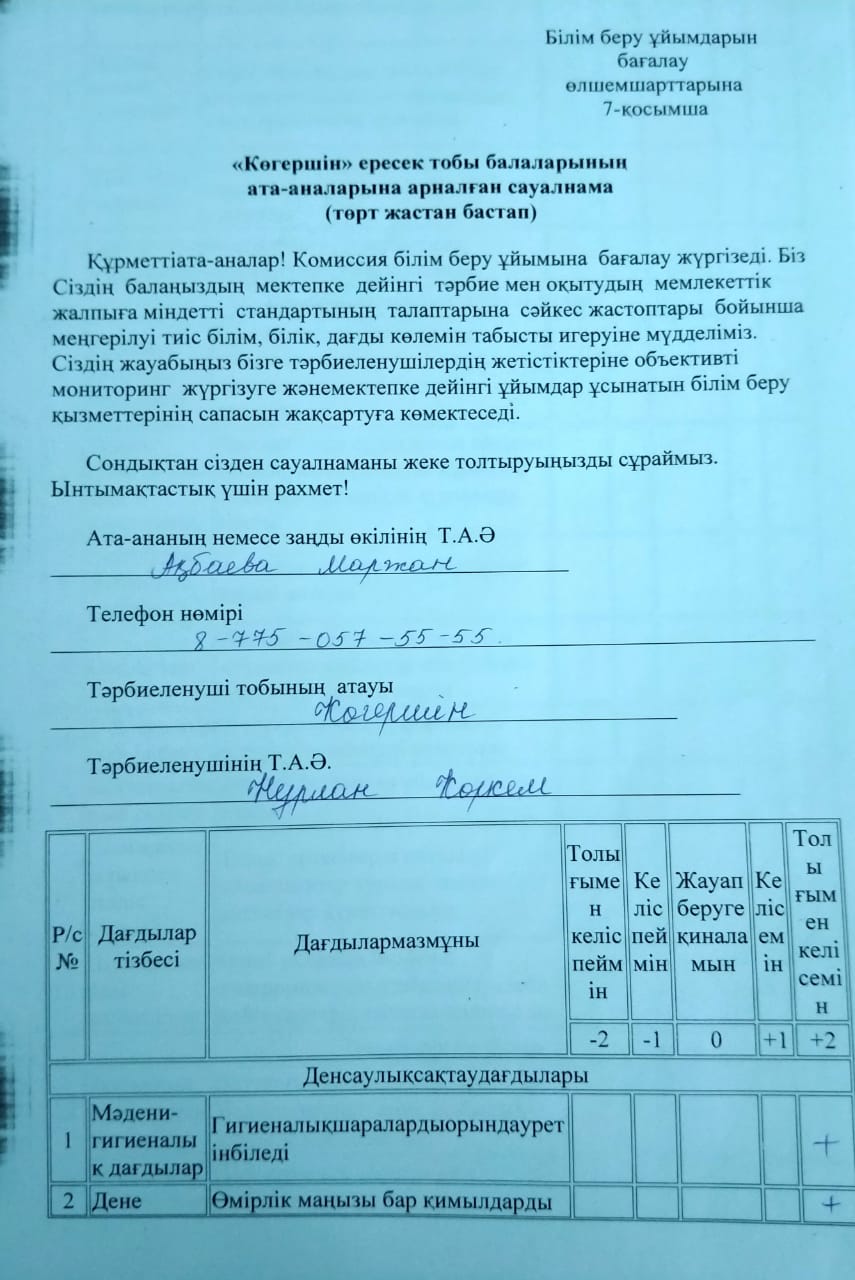 Білім беру ұйымдарын
бағалау
өлшемшарттарына
7-қосымша
«Көгершін» ересек тобы балаларының
ата-аналарына арналған сауалнама
(төрт жастан бастап)
Құрметтіата-аналар! Комиссия білім беру ұйымына бағалау жүргізеді. Біз
Сіздің балаңыздың мектепке дейінгі тәрбие мен оқытудың мемлекеттік
жалпыға міндетті стандартының талаптарына сәйкес жастоптары бойынша
меңгерілуі тиіс білім, білік, дағды көлемін табысты игеруіне мүдделіміз.
Сіздің жауабыңыз бізге тәрбиеленушілердің жетістіктеріне объективті
мониторинг жүргізуге жәнемектепке дейінгі ұйымдар ұсынатын білім беру
қызметтерінің сапасын жақсартуға көмектеседі.
Сондықтан сізден сауалнаманы жеке толтыруыңызды сұраймыз.
Ынтымақтастық үшін рахмет!
Ата-ананың немесе заңды өкілінің Т.А.Ә
Ақбаева Маржан
Телефон нөмірі
8-775-057-55-55.
Тәрбиеленуші тобының атауы
Көгершін
Тәрбиеленушінің Т.А.Ә.
Нұрлан Көркем
Р/с
№
Дағдылар
тізбесі
Дағдылармазмұны
Толы
ғыме
н
келіс
пейм
ін
Ке
ліс
пей
мін
Жауап
беруге
қинала
мын
Ке
ліс
ем
ін
Тол
ы
ғым
ен
келі
семі
н
-2 -1 0 +1 +2
Денсаулықсақтаудағдылары
1
Мәдени-
гигиеналы
қ дағдылар
Гигиеналықшаралардыорындаурет
інбіледі
+
2 Дене Өмірлік маңызы бар қимылдарды +